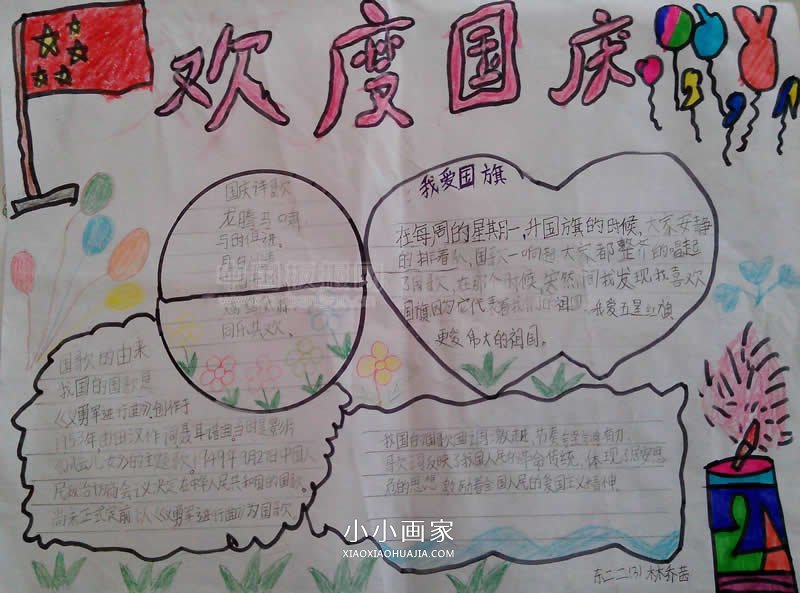 欢度国庆
国庆诗歌
龙腾马啸
与时俱进。
同乐共欢。
我爱国旗
在每周的星期一,升国旗的时候,大家安静
的排着队,国歌一响起大家都整齐的唱起
了国歌,在那个时候,突然间我发现我喜欢
国旗因为它代表着我们的祖国。我爱五星红旗
更爱伟大的祖国。
国歌的由来
我国的国歌是
《义勇军进行曲》创作于
年,由田汉作词聂耳谱曲。
的主题歌。1949年9月27日中国人
民政治协商会议决定在中华人民共和国的国歌
尚未正式定前以《义勇军进行曲》为国歌
我国的国歌曲调激越,节奏铿锵有力,
歌词反映了我国人民的革命传统,体现了居安思
危的思想,激励着全国人民的爱国主义精神。
小小画家
XIAOXIAOHUAJIA.COM
林乔茜